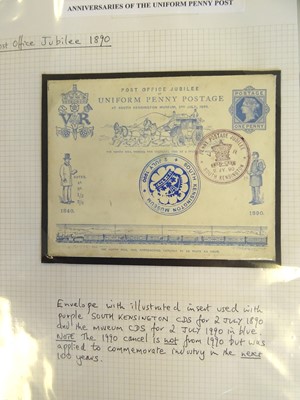 ANNIVERSARIES OF THE UNIFORM PENNY POST
Post Office Jubilee 1890
POST OFFICE JUBILEE
OF
UNIFORM PENNY POSTAGE
AT SOUTH KENSINGTON MUSEUM, 2ND JULY, 1890
VR
POSTAGE
ONE PENNY
PENNY POSTAGE JUBILEE
SOUTH KENSINGTON
SOUTH KENSINGTON MUSEUM
1840.
1890.
Envelope with illustrated insert used with
purple SOUTH KENSINGTON CDS for 2 JULY 1890
and the museum CDS for 2 JULY 1990 in blue.
NOTE The 1990 cancel is not from 1990 but was
applied to commemorate industry in the next
100 years.